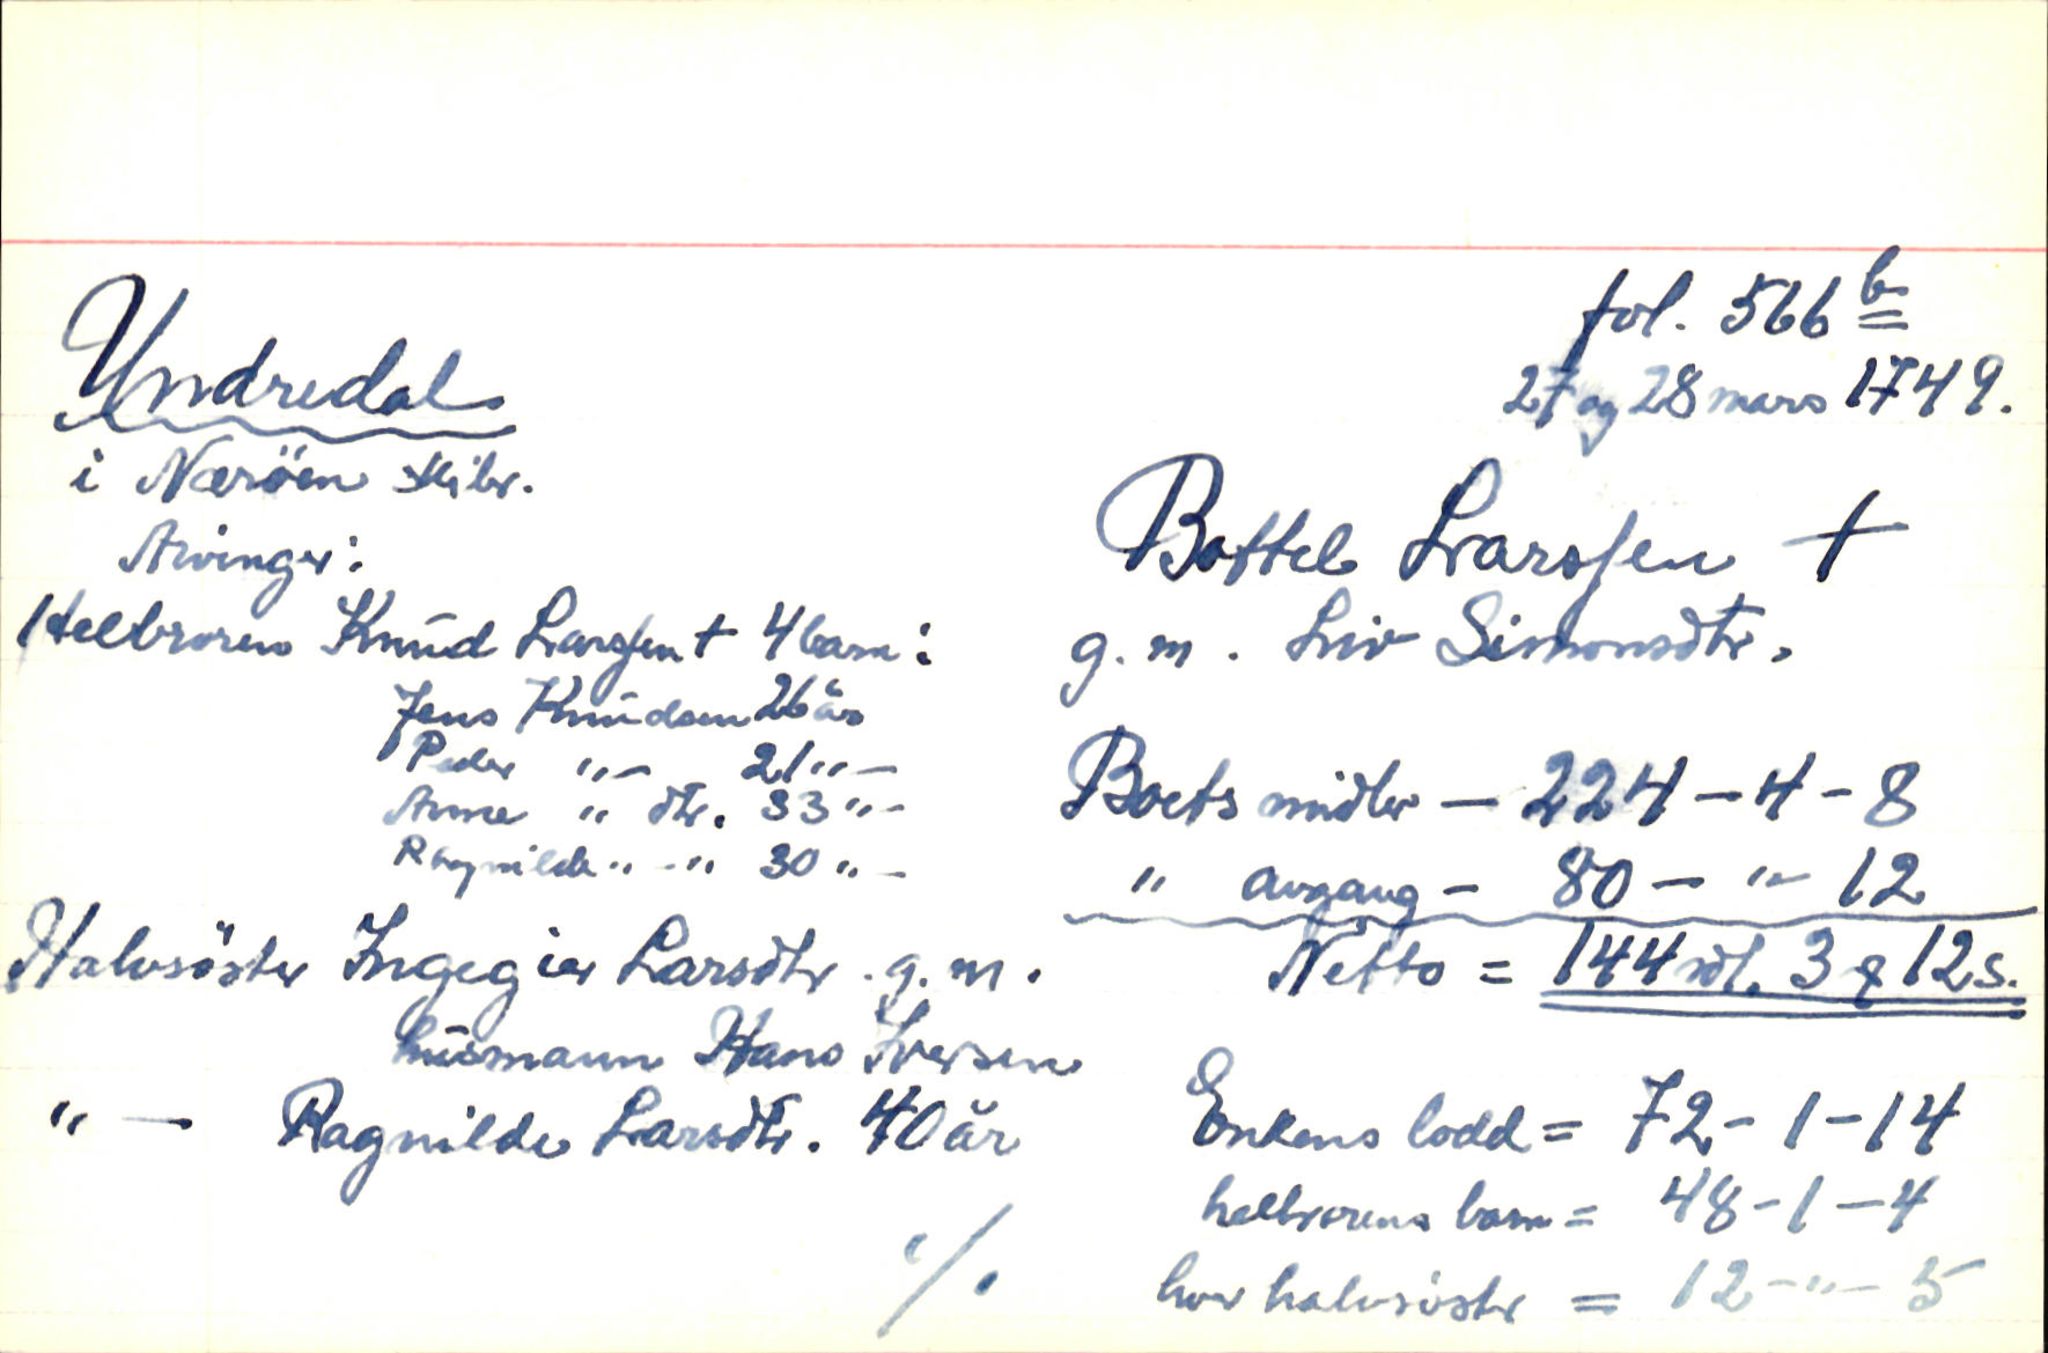 fol. 566 b
27 og 28 mars 1749.
Undredal
i Næröen skibr.
Arvinger:
Helbroren Knud Larssen + 4 barn:
Jens Knudsen 26 år
Peder "— 21 "—
Anna " dtr. 33 "—
Ragnilde " —" 30 "—
Halvsöster Ingegier Larsdtr. g. m.
husmann Hans Iversen
" — Ragnilde Larsdtr. 40 år
Bottel Larssen +
g. m. Liv Simonsdtr.
Boets midler — 224 — 4 — 8
" avgang — 80 — " — 12
Netto = 144 rdl. 3 q 12 s.
Enkens lodd = 72 — 1 — 14
helbrorens barn = 48 — 1 — 4
hver halvsöster = 12 — " — 5
"/.